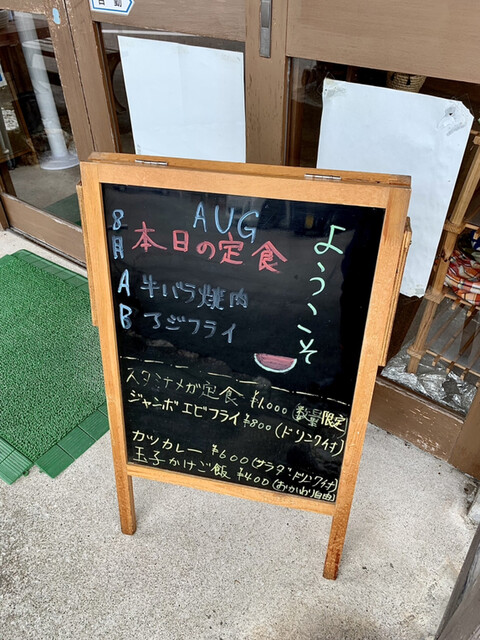 自動
AUG
8月
本日の定食
ようこそ
A 牛バラ焼肉
B アジフライ
スタミナメガ定食 ¥1,000 (数量限定)
ジャンボエビフライ ¥800 (ドリンク付)
カツカレー ¥600 (サラダ・ドリンク付)
玉子かけご飯 ¥400 (おかわり自由)